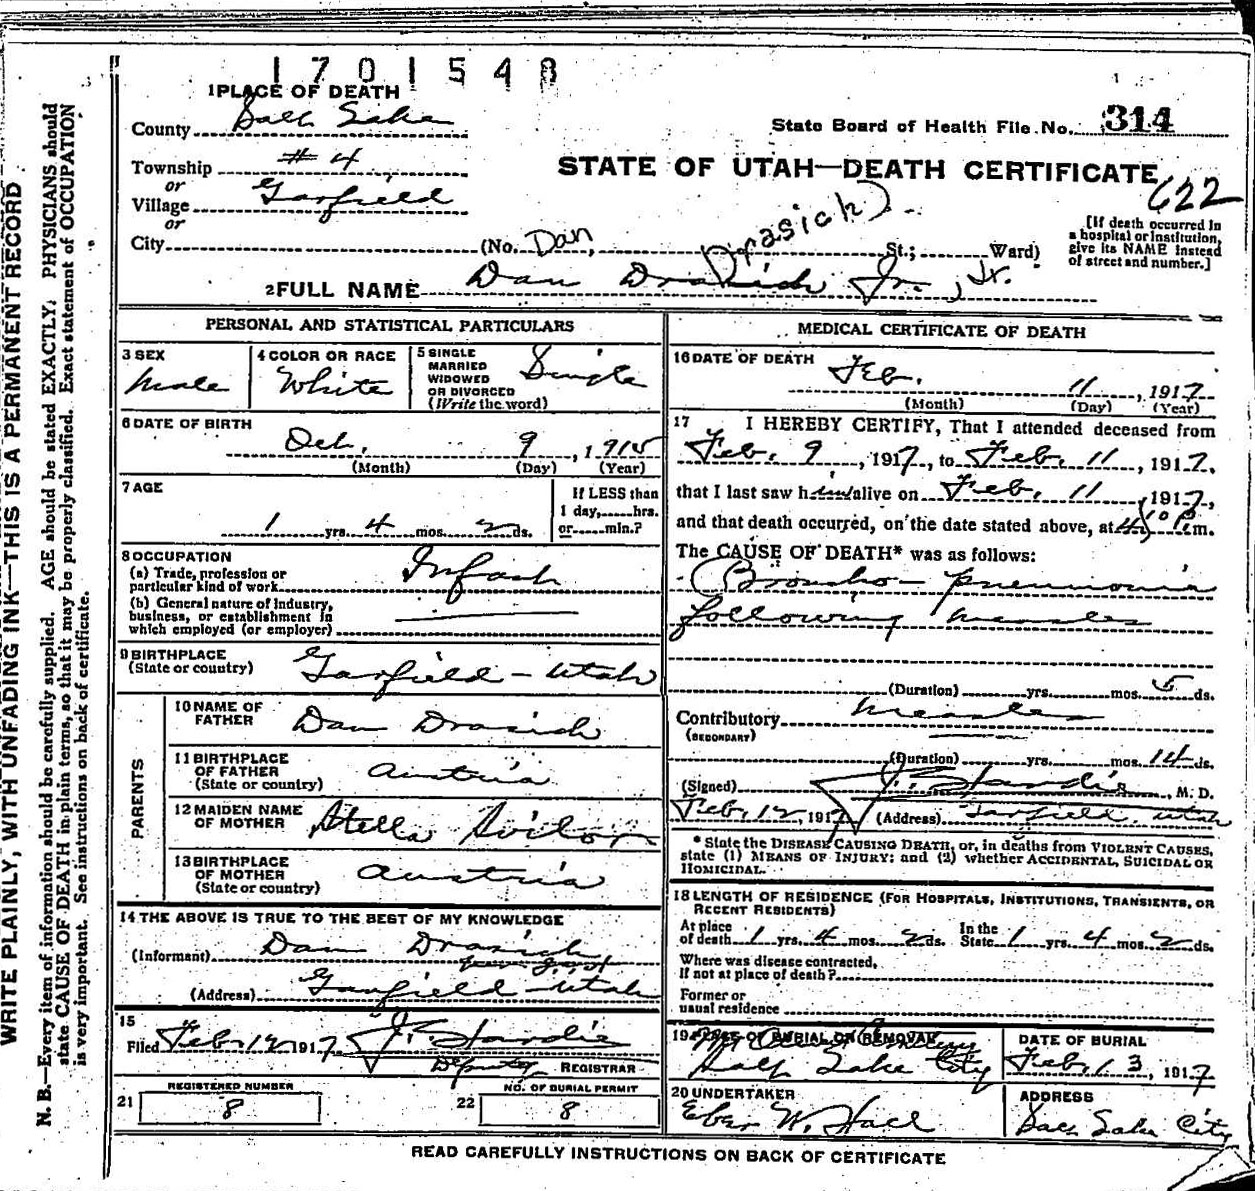 1701548
1 PLACE OF DEATH
County Salt Lake
State Board of Health File No. 314
Township #4
STATE OF UTAH—DEATH CERTIFICATE
622
or
Village Garfield
or
City (No. Dan Drasich). St.; Ward)
[If death occurred in
a hospital or institution,
give its NAME instead
of street and number.]
2 FULL NAME Dan Drasich Jr., Jr.
PERSONAL AND STATISTICAL PARTICULARS
3 SEX
Male
4 COLOR OR RACE
White
5 SINGLE
MARRIED
WIDOWED
OR DIVORCED
(Write the word)
Single
6 DATE OF BIRTH
Oct. 9, 1915
(Month) (Day) (Year)
7 AGE
1 yrs. 4 mos. 2 ds.
If LESS than
1 day, hrs.
or min.?
8 OCCUPATION
(a) Trade, profession or
particular kind of work Infant
(b) General nature of Industry,
business, or establishment in
which employed (or employer)
9 BIRTHPLACE
(State or country) Garfield - Utah
PARENTS
10 NAME OF
FATHER Dan Drasich
11 BIRTHPLACE
OF FATHER
(State or country) Austria
12 MAIDEN NAME
OF MOTHER Stella
13 BIRTHPLACE
OF MOTHER
(State or country) Austria
14 THE ABOVE IS TRUE TO THE BEST OF MY KNOWLEDGE
(Informant) Dan Drasich
(Address) Garfield - Utah
15
Filed Feb. 12 1917 J. F. Hardie
Deputy REGISTRAR
REGISTERED NUMBER
21 8
NO. OF BURIAL PERMIT
22 8
MEDICAL CERTIFICATE OF DEATH
16 DATE OF DEATH
Feb. 11, 1917
(Month) (Day) (Year)
17 I HEREBY CERTIFY, That I attended deceased from
Feb. 9, 1917, to Feb. 11, 1917,
that I last saw him alive on Feb. 11, 1917,
and that death occurred, on the date stated above, at m.
The CAUSE OF DEATH* was as follows:
Broncho-pneumonia
following measles
(Duration) yrs. mos. 5 ds.
Contributory measles
(SECONDARY)
(Duration) yrs. mos. 14 ds.
(Signed) J. F. Hardie, M. D.
Feb. 12, 1917 (Address) Garfield, Utah
* State the DISEASE CAUSING DEATH, or, in deaths from VIOLENT CAUSES,
state (1) MEANS OF INJURY; and (2) whether ACCIDENTAL, SUICIDAL OR
HOMICIDAL.
18 LENGTH OF RESIDENCE (FOR HOSPITALS, INSTITUTIONS, TRANSIENTS, OR
RECENT RESIDENTS)
At place
of death 1 yrs. 4 mos. 2 ds.
In the
State 1 yrs. 4 mos. 2 ds.
Where was disease contracted,
If not at place of death?
Former or
usual residence
19 PLACE OF BURIAL OR REMOVAL
Salt Lake City
DATE OF BURIAL
Feb. 13, 1917
20 UNDERTAKER
Eber W. Hall
ADDRESS
Salt Lake City
READ CAREFULLY INSTRUCTIONS ON BACK OF CERTIFICATE
WRITE PLAINLY, WITH UNFADING INK—THIS IS A PERMANENT RECORD
N. B.—Every item of information should be carefully supplied. AGE should be stated EXACTLY. PHYSICIANS should
state CAUSE OF DEATH in plain terms, so that it may be properly classified. Exact statement of OCCUPATION
is very important. See instructions on back of certificate.